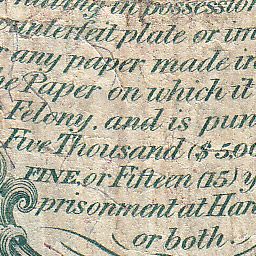 having in possession
counterfeit plate or im
r any paper made in
he Paper on which it
Felony, and is pun
Five Thousand ($5,00
FINE, or Fifteen (15) y
prisonment at Har
or both.